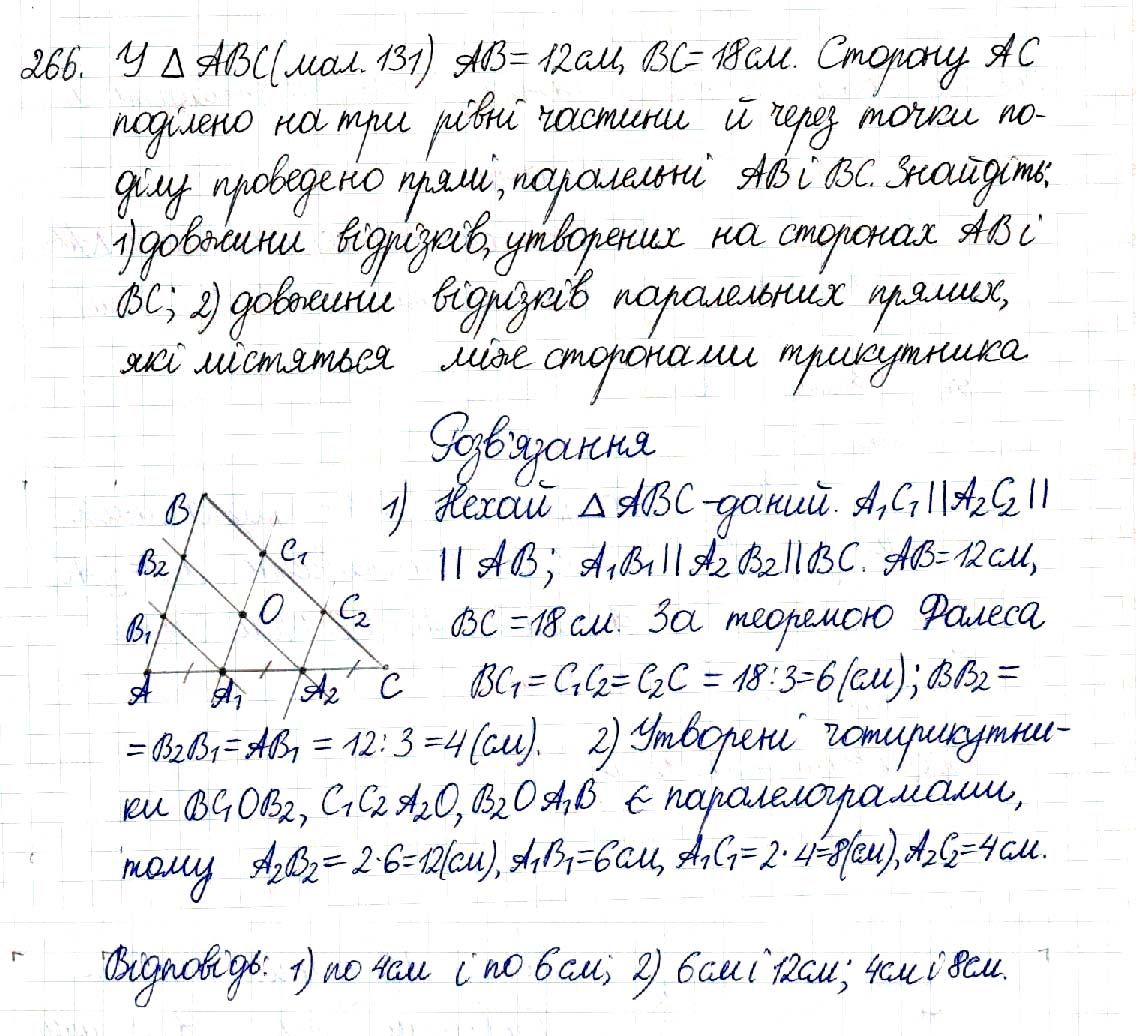 266. У △ ABC (мал. 131) AB = 12 см, BC = 18 см. Сторону AC
поділено на три рівні частини й через точки по-
ділу проведено прямі, паралельні AB і BC. Знайдіть:
1) довжини відрізків, утворених на сторонах AB і
BC; 2) довжини відрізків паралельних прямих,
які містяться між сторонами трикутника
Розв'язання
1) Нехай △ ABC - даний. A₁C₁ || A₂C₂ ||
|| AB; A₁B₁ || A₂B₂ || BC. AB = 12 см,
BC = 18 см. За теоремою Фалеса
BC₁ = C₁C₂ = C₂C = 18 : 3 = 6 (см); BB₂ =
= B₂B₁ = AB₁ = 12 : 3 = 4 (см). 2) Утворені чотирикутни-
ки BC₁OB₂, C₁C₂A₂O, B₂OA₁B є паралелограмами,
тому A₂B₂ = 2·6 = 12 (см), A₁B₁ = 6 см, A₁C₁ = 2·4 = 8 (см), A₂C₂ = 4 см.
B
B₂
C₁
B₁
O
C₂
A
A₁
A₂
C
Відповідь: 1) по 4 см і по 6 см; 2) 6 см і 12 см; 4 см і 8 см.